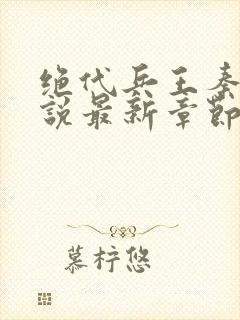 绝代兵王秦
說最新章節
慕梓悠